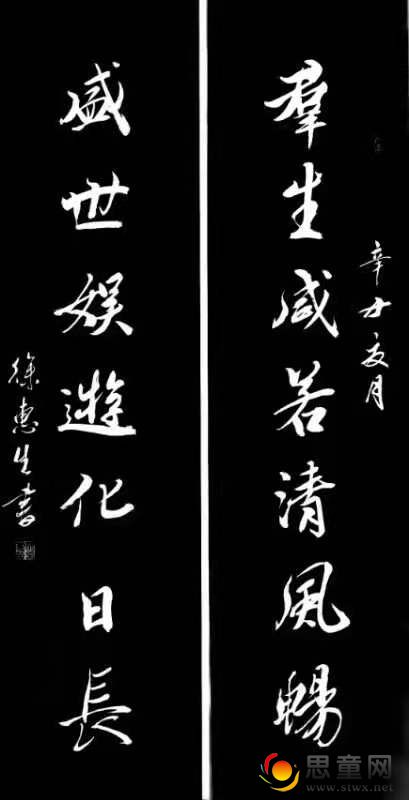 辛丑夏月
羣生咸若清風暢
盛世娛遊化日長
徐惠生書
思童网
www.stwx.net